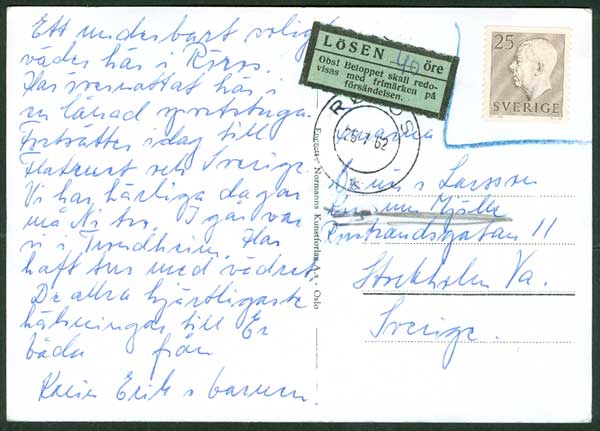 Ett underbart soligt
väder här i Röros.
Har övernattat här i
en lånad sportstuga.
Fortsätter idag till
och Sverige.
Vi har härliga dagar
må Ni tro. I går var
vi i Trondheim. Har
haft tur med vädret.
De allra hjärtligaste
hälsningar till Er
båda från
Erik o barnen.
LÖSEN 40 öre
Obs! Beloppet skall redo-
visas med frimärken på
försändelsen.
RÖROS
25 7 62
25
SVERIGE
Larsson
Rörstrandsgatan 11
Stockholm Va.
Sverige.
Normanns Kunstforlag A.s - Oslo